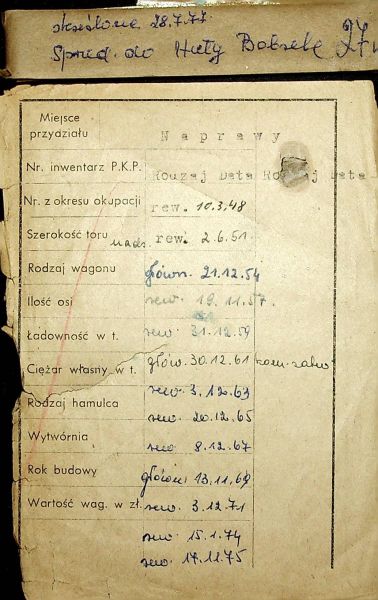 skreślono 28.7.77
Sprzed. do Huty Bobrek 27
Miejsce przydziału
Naprawy
Nr. inwentarz P.K.P. Rodzaj Data Rodzaj Data
Nr. z okresu okupacji rew. 10.3.48
Szerokość toru nadz. rew. 2.6.51
Rodzaj wagonu główn. 21.12.54
Ilość osi rew 19.11.57.
Ładowność w t. rew. 31.12.59
Ciężar własny w t. głów. 30.12.61
rew. 3.12.63
Rodzaj hamulca
rew. 20.12.65
Wytwórnia rew 8.12.67
Rok budowy główn. 13.11.69
Wartość wag. w zł. rew. 3.12.71
rew 15.1.74
rew 17.11.75